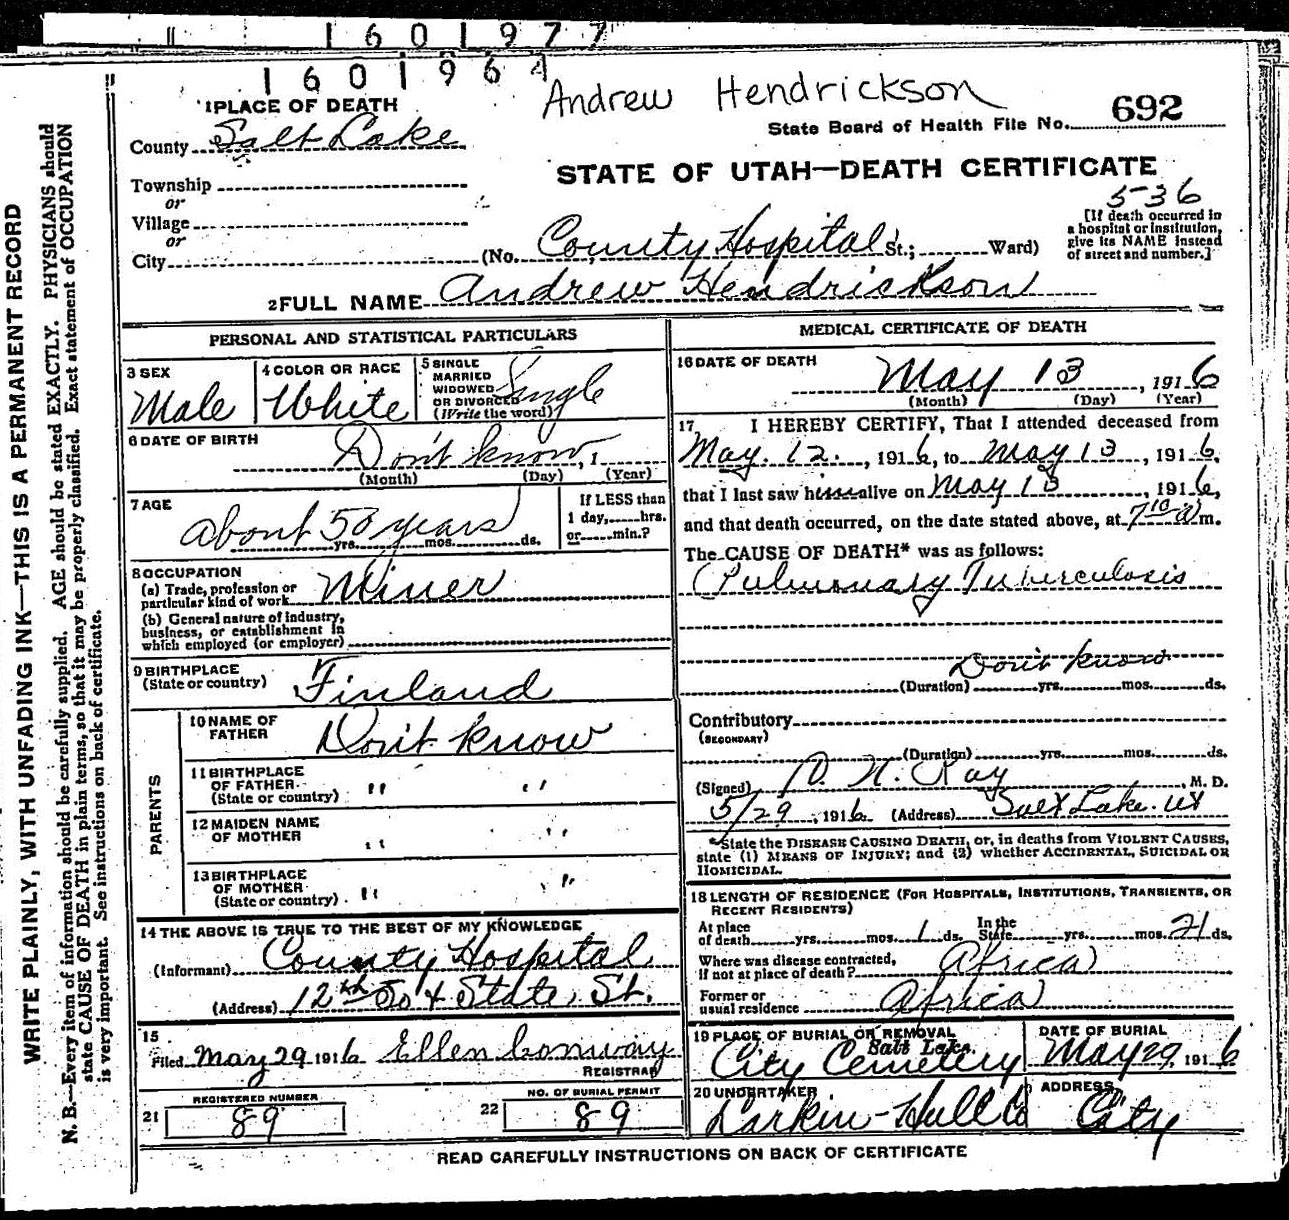 1601977
1601964
Andrew Hendrickson
1 PLACE OF DEATH
State Board of Health File No. 692
County Salt Lake
STATE OF UTAH—DEATH CERTIFICATE
536
Township
or
Village
or
City (No. County Hospital St.; Ward)
[If death occurred in
a hospital or institution,
give its NAME instead
of street and number.]
2 FULL NAME Andrew Hendrickson
PERSONAL AND STATISTICAL PARTICULARS
3 SEX
Male
4 COLOR OR RACE
White
5 SINGLE
MARRIED
WIDOWED
OR DIVORCED
(Write the word)
Single
6 DATE OF BIRTH
Don't know, 1
(Month) (Day) (Year)
7 AGE
about 50 years
yrs. mos. ds.
If LESS than
1 day, hrs.
or min.?
8 OCCUPATION
(a) Trade, profession or
particular kind of work Miner
(b) General nature of industry,
business, or establishment in
which employed (or employer)
9 BIRTHPLACE
(State or country) Finland
PARENTS
10 NAME OF
FATHER Don't know
11 BIRTHPLACE
OF FATHER
(State or country) " "
12 MAIDEN NAME
OF MOTHER " "
13 BIRTHPLACE
OF MOTHER
(State or country) " "
14 THE ABOVE IS TRUE TO THE BEST OF MY KNOWLEDGE
(Informant) County Hospital
(Address) 12th So & State St.
15
Filed May 29 1916 Ellen Conway
REGISTRAR
REGISTERED NUMBER
21 89
NO. OF BURIAL PERMIT
22 89
MEDICAL CERTIFICATE OF DEATH
16 DATE OF DEATH
May 13, 1916
(Month) (Day) (Year)
17 I HEREBY CERTIFY, That I attended deceased from
May. 12., 1916, to May 13, 1916,
that I last saw him alive on May 13, 1916,
and that death occurred, on the date stated above, at 7 10 a m.
The CAUSE OF DEATH* was as follows:
Pulmonary Tuberculosis
Don't know
(Duration) yrs. mos. ds.
Contributory
(SECONDARY)
(Duration) yrs. mos. ds.
(Signed) Kay, M. D.
5/29, 1916 (Address) Salt Lake. Ut
*State the DISEASE CAUSING DEATH, or, in deaths from VIOLENT CAUSES,
state (1) MEANS OF INJURY; and (2) whether ACCIDENTAL, SUICIDAL OR
HOMICIDAL.
18 LENGTH OF RESIDENCE (FOR HOSPITALS, INSTITUTIONS, TRANSIENTS, OR
RECENT RESIDENTS)
At place
of death yrs. mos. 1 ds. In the
State yrs. mos. 21 ds.
Where was disease contracted,
if not at place of death? Africa
Former or
usual residence Africa
19 PLACE OF BURIAL OR REMOVAL
Salt Lake.
City Cemetery
DATE OF BURIAL
May 29, 1916
20 UNDERTAKER
Larkin-Hull Co
ADDRESS
City
READ CAREFULLY INSTRUCTIONS ON BACK OF CERTIFICATE
WRITE PLAINLY, WITH UNFADING INK—THIS IS A PERMANENT RECORD
N. B.—Every item of information should be carefully supplied. AGE should be stated EXACTLY. PHYSICIANS should
state CAUSE OF DEATH in plain terms, so that it may be properly classified. Exact statement of OCCUPATION
is very important. See instructions on back of certificate.